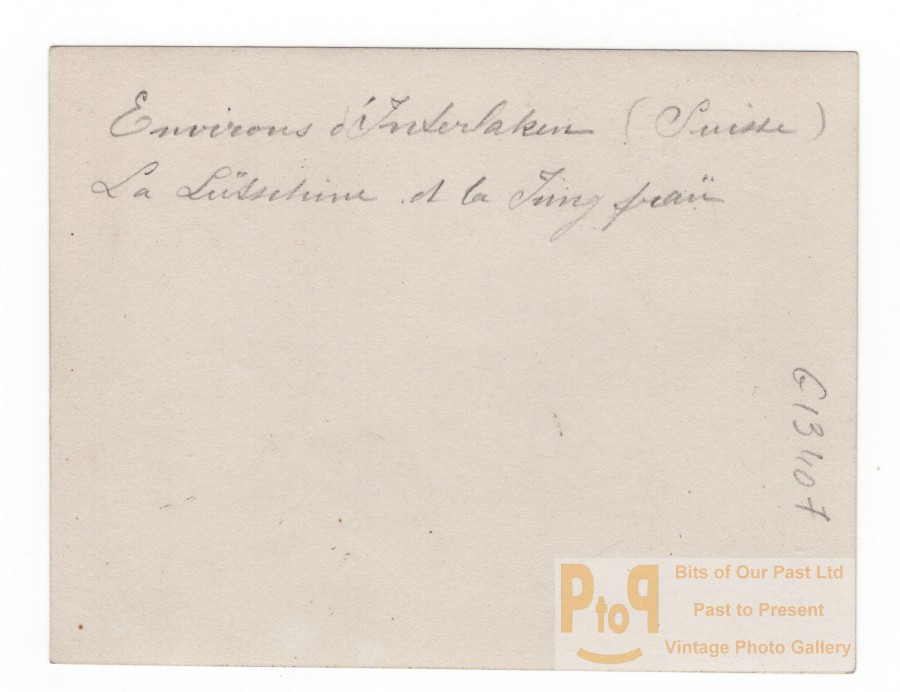 Environs d'Interlaken (Suisse)
La Lütschine et la Jungfraü
G13407
PtoP
Bits of Our Past Ltd
Past to Present
Vintage Photo Gallery